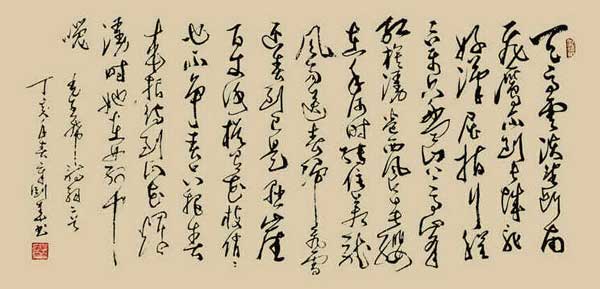 天高雲淡望断南
飛雁不到长城非
好漢屈指行程
二万六盘山上高峰
红旗漫卷西风今日长缨
在手何时缚住苍龙
风雨送春归飞雪
迎春到已是悬崖
百丈冰犹有花枝俏〻
也不争春只把春
来报待到山花烂
漫时她在丛中
笑
毛主席诗词二首
丁亥年春